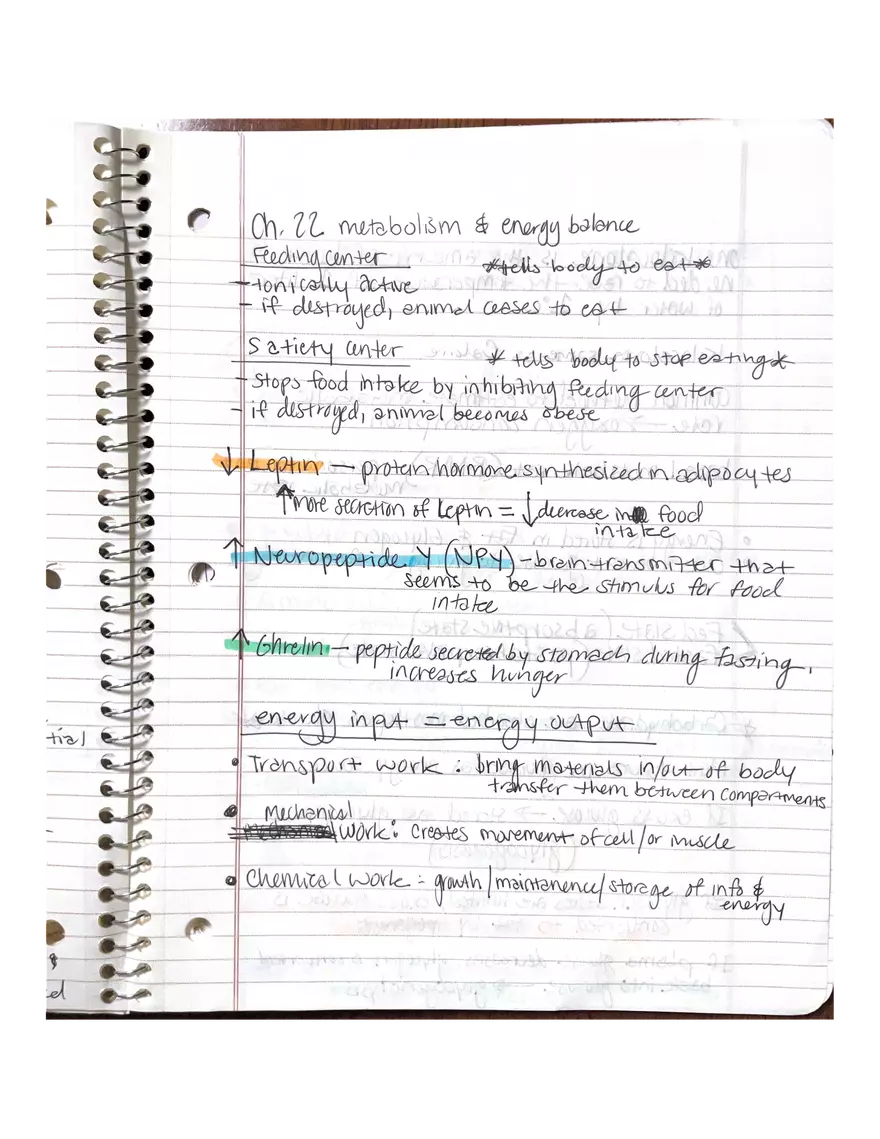 Ch. 22 metabolism & energy balance
Feeding center *tells body to eat*
- tonically active
- if destroyed, animal ceases to eat
Satiety center * tells body to stop eating*
- stops food intake by inhibiting feeding center
- if destroyed, animal becomes obese
↓ Leptin — protein hormone synthesized in adipocytes
↑ more secretion of Leptin = ↓ decrease in food
intake
↑ Neuropeptide Y (NPY) - brain transmitter that
seems to be the stimulus for food
intake
↑ Ghrelin — peptide secreted by stomach during fasting,
increases hunger
energy input = energy output
tial
• Transport work : bring materials in/out of body
transfer them between compartments
• Mechanical
work: creates movement of cell/or muscle
• Chemical work : growth/maintanence/storage of info &
energy
&
ed